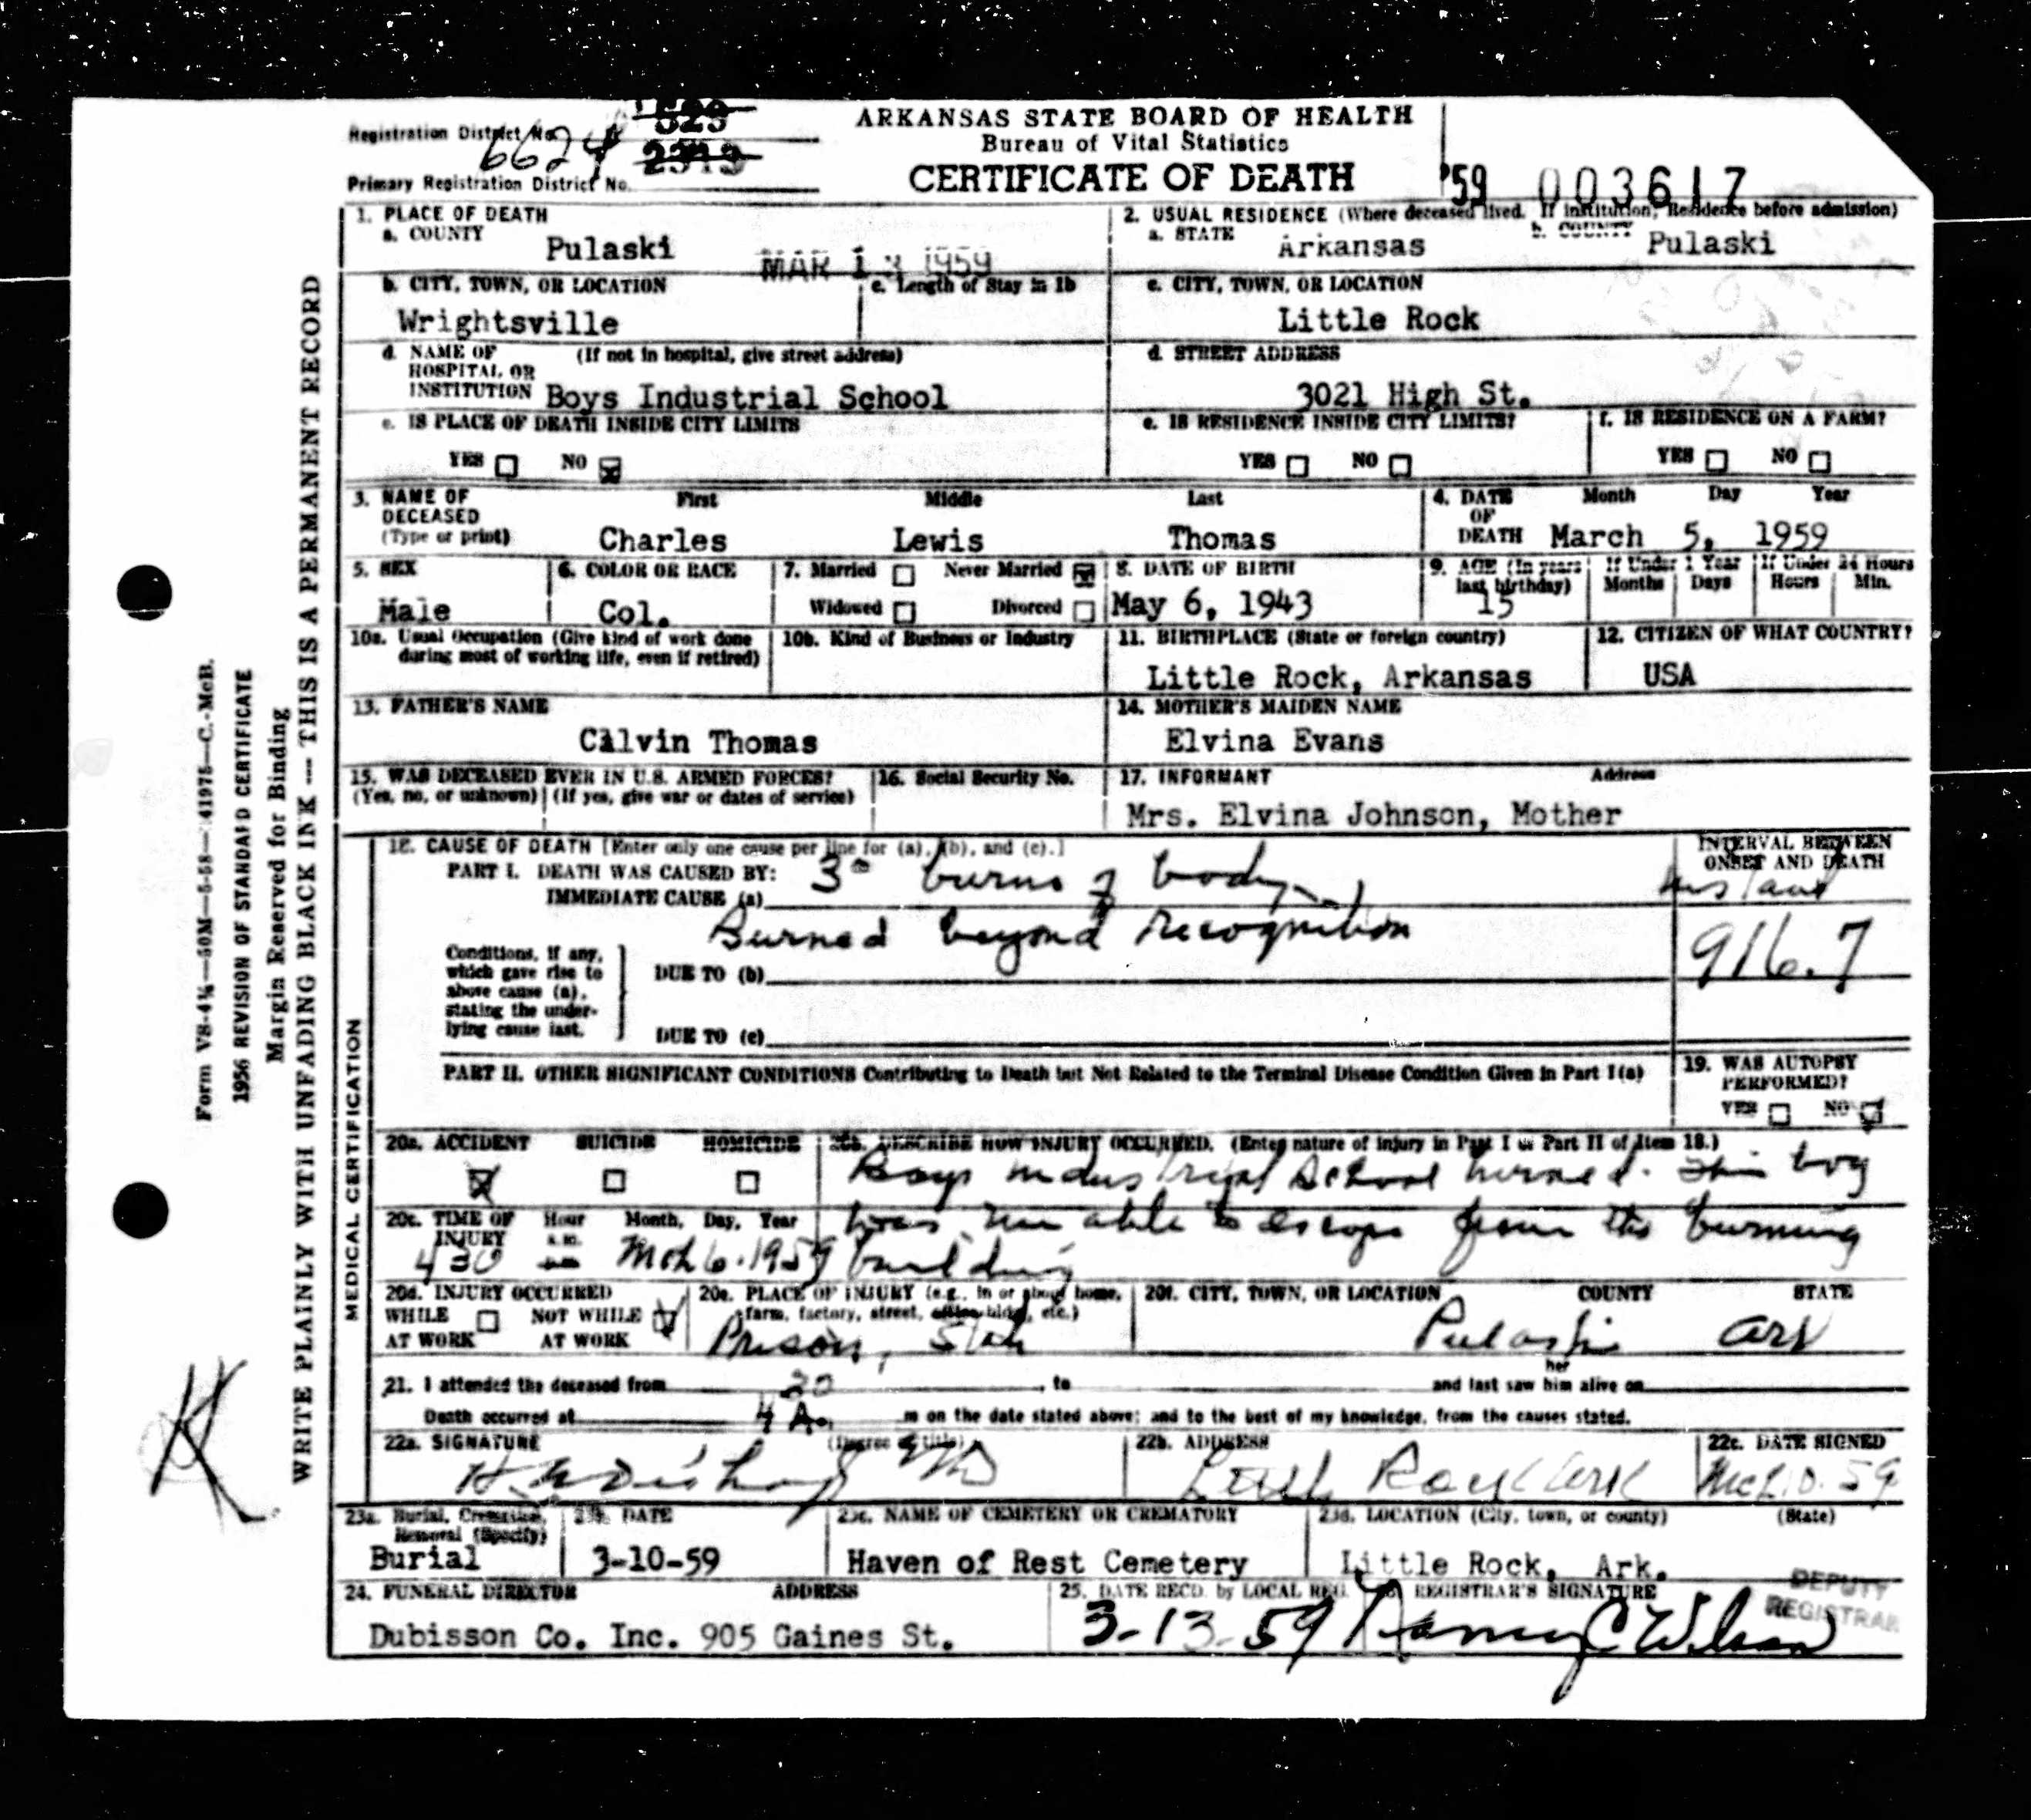 Registration District No. 529
6624
2313
Primary Registration District No.
ARKANSAS STATE BOARD OF HEALTH
Bureau of Vital Statistics
CERTIFICATE OF DEATH
'59 003617
1. PLACE OF DEATH
a. COUNTY Pulaski
MAR 13 1959
2. USUAL RESIDENCE (Where deceased lived. If institution, Residence before admission)
a. STATE Arkansas b. COUNTY Pulaski
b. CITY, TOWN, OR LOCATION
Wrightsville
c. Length of Stay in 1b
c. CITY, TOWN, OR LOCATION
Little Rock
d. NAME OF (If not in hospital, give street address)
HOSPITAL OR
INSTITUTION Boys Industrial School
d. STREET ADDRESS
3021 High St.
e. IS PLACE OF DEATH INSIDE CITY LIMITS
YES NO
e. IS RESIDENCE INSIDE CITY LIMITS?
YES NO
f. IS RESIDENCE ON A FARM?
YES NO
3. NAME OF First Middle Last
DECEASED
(Type or print) Charles Lewis Thomas
4. DATE Month Day Year
OF
DEATH March 5, 1959
5. SEX
Male
6. COLOR OR RACE
Col.
7. Married Never Married
Widowed Divorced
8. DATE OF BIRTH
May 6, 1943
9. AGE (In years
last birthday)
15
If Under 1 Year
Months Days
If Under 24 Hours
Hours Min.
10a. Usual Occupation (Give kind of work done
during most of working life, even if retired)
10b. Kind of Business or Industry
11. BIRTHPLACE (State or foreign country)
Little Rock, Arkansas
12. CITIZEN OF WHAT COUNTRY?
USA
13. FATHER'S NAME
Calvin Thomas
14. MOTHER'S MAIDEN NAME
Elvina Evans
15. WAS DECEASED EVER IN U.S. ARMED FORCES?
(Yes, no, or unknown) (If yes, give war or dates of service)
16. Social Security No.
17. INFORMANT Address
Mrs. Elvina Johnson, Mother
18. CAUSE OF DEATH [Enter only one cause per line for (a), (b), and (c).]
PART I. DEATH WAS CAUSED BY:
IMMEDIATE CAUSE (a) 3° burns of body
Burned beyond recognition
INTERVAL BETWEEN
ONSET AND DEATH
instant
916.7
Conditions, if any,
which gave rise to
above cause (a),
stating the under-
lying cause last.
DUE TO (b)
DUE TO (c)
PART II. OTHER SIGNIFICANT CONDITIONS Contributing to Death but Not Related to the Terminal Disease Condition Given in Part I(a)
19. WAS AUTOPSY
PERFORMED?
YES NO
20a. ACCIDENT SUICIDE HOMICIDE
20b. DESCRIBE HOW INJURY OCCURRED. (Enter nature of injury in Part I or Part II of Item 18.)
Boys Industrial School burned. This boy
was un able to escape from the burning
building
20c. TIME OF Hour Month, Day, Year
INJURY a.m.
430 Mch 6. 1959
20d. INJURY OCCURRED
WHILE NOT WHILE
AT WORK AT WORK
20e. PLACE OF INJURY (e.g., in or about home,
farm, factory, street, office bldg., etc.)
Prison, State
20f. CITY, TOWN, OR LOCATION COUNTY STATE
Pulaski Ark
21. I attended the deceased from , to and last saw her him alive on
Death occurred at 4 30 A. m on the date stated above; and to the best of my knowledge, from the causes stated.
22a. SIGNATURE (Degree or title)
MD
22b. ADDRESS
Little Rock Ark
22c. DATE SIGNED
59
23a. Burial, Cremation,
Removal (Specify)
Burial
23b. DATE
3-10-59
23c. NAME OF CEMETERY OR CREMATORY
Haven of Rest Cemetery
23d. LOCATION (City, town, or county) (State)
Little Rock, Ark.
24. FUNERAL DIRECTOR ADDRESS
Dubisson Co. Inc. 905 Gaines St.
25. DATE RECD. by LOCAL REG.
3-13-59
REGISTRAR'S SIGNATURE
C Wilson
DEPUTY
REGISTRAR
MEDICAL CERTIFICATION
WRITE PLAINLY WITH UNFADING BLACK INK --- THIS IS A PERMANENT RECORD
Margin Reserved for Binding
1956 REVISION OF STANDARD CERTIFICATE
Form VS-4¼—50M—5-58—41975—C.-McB.